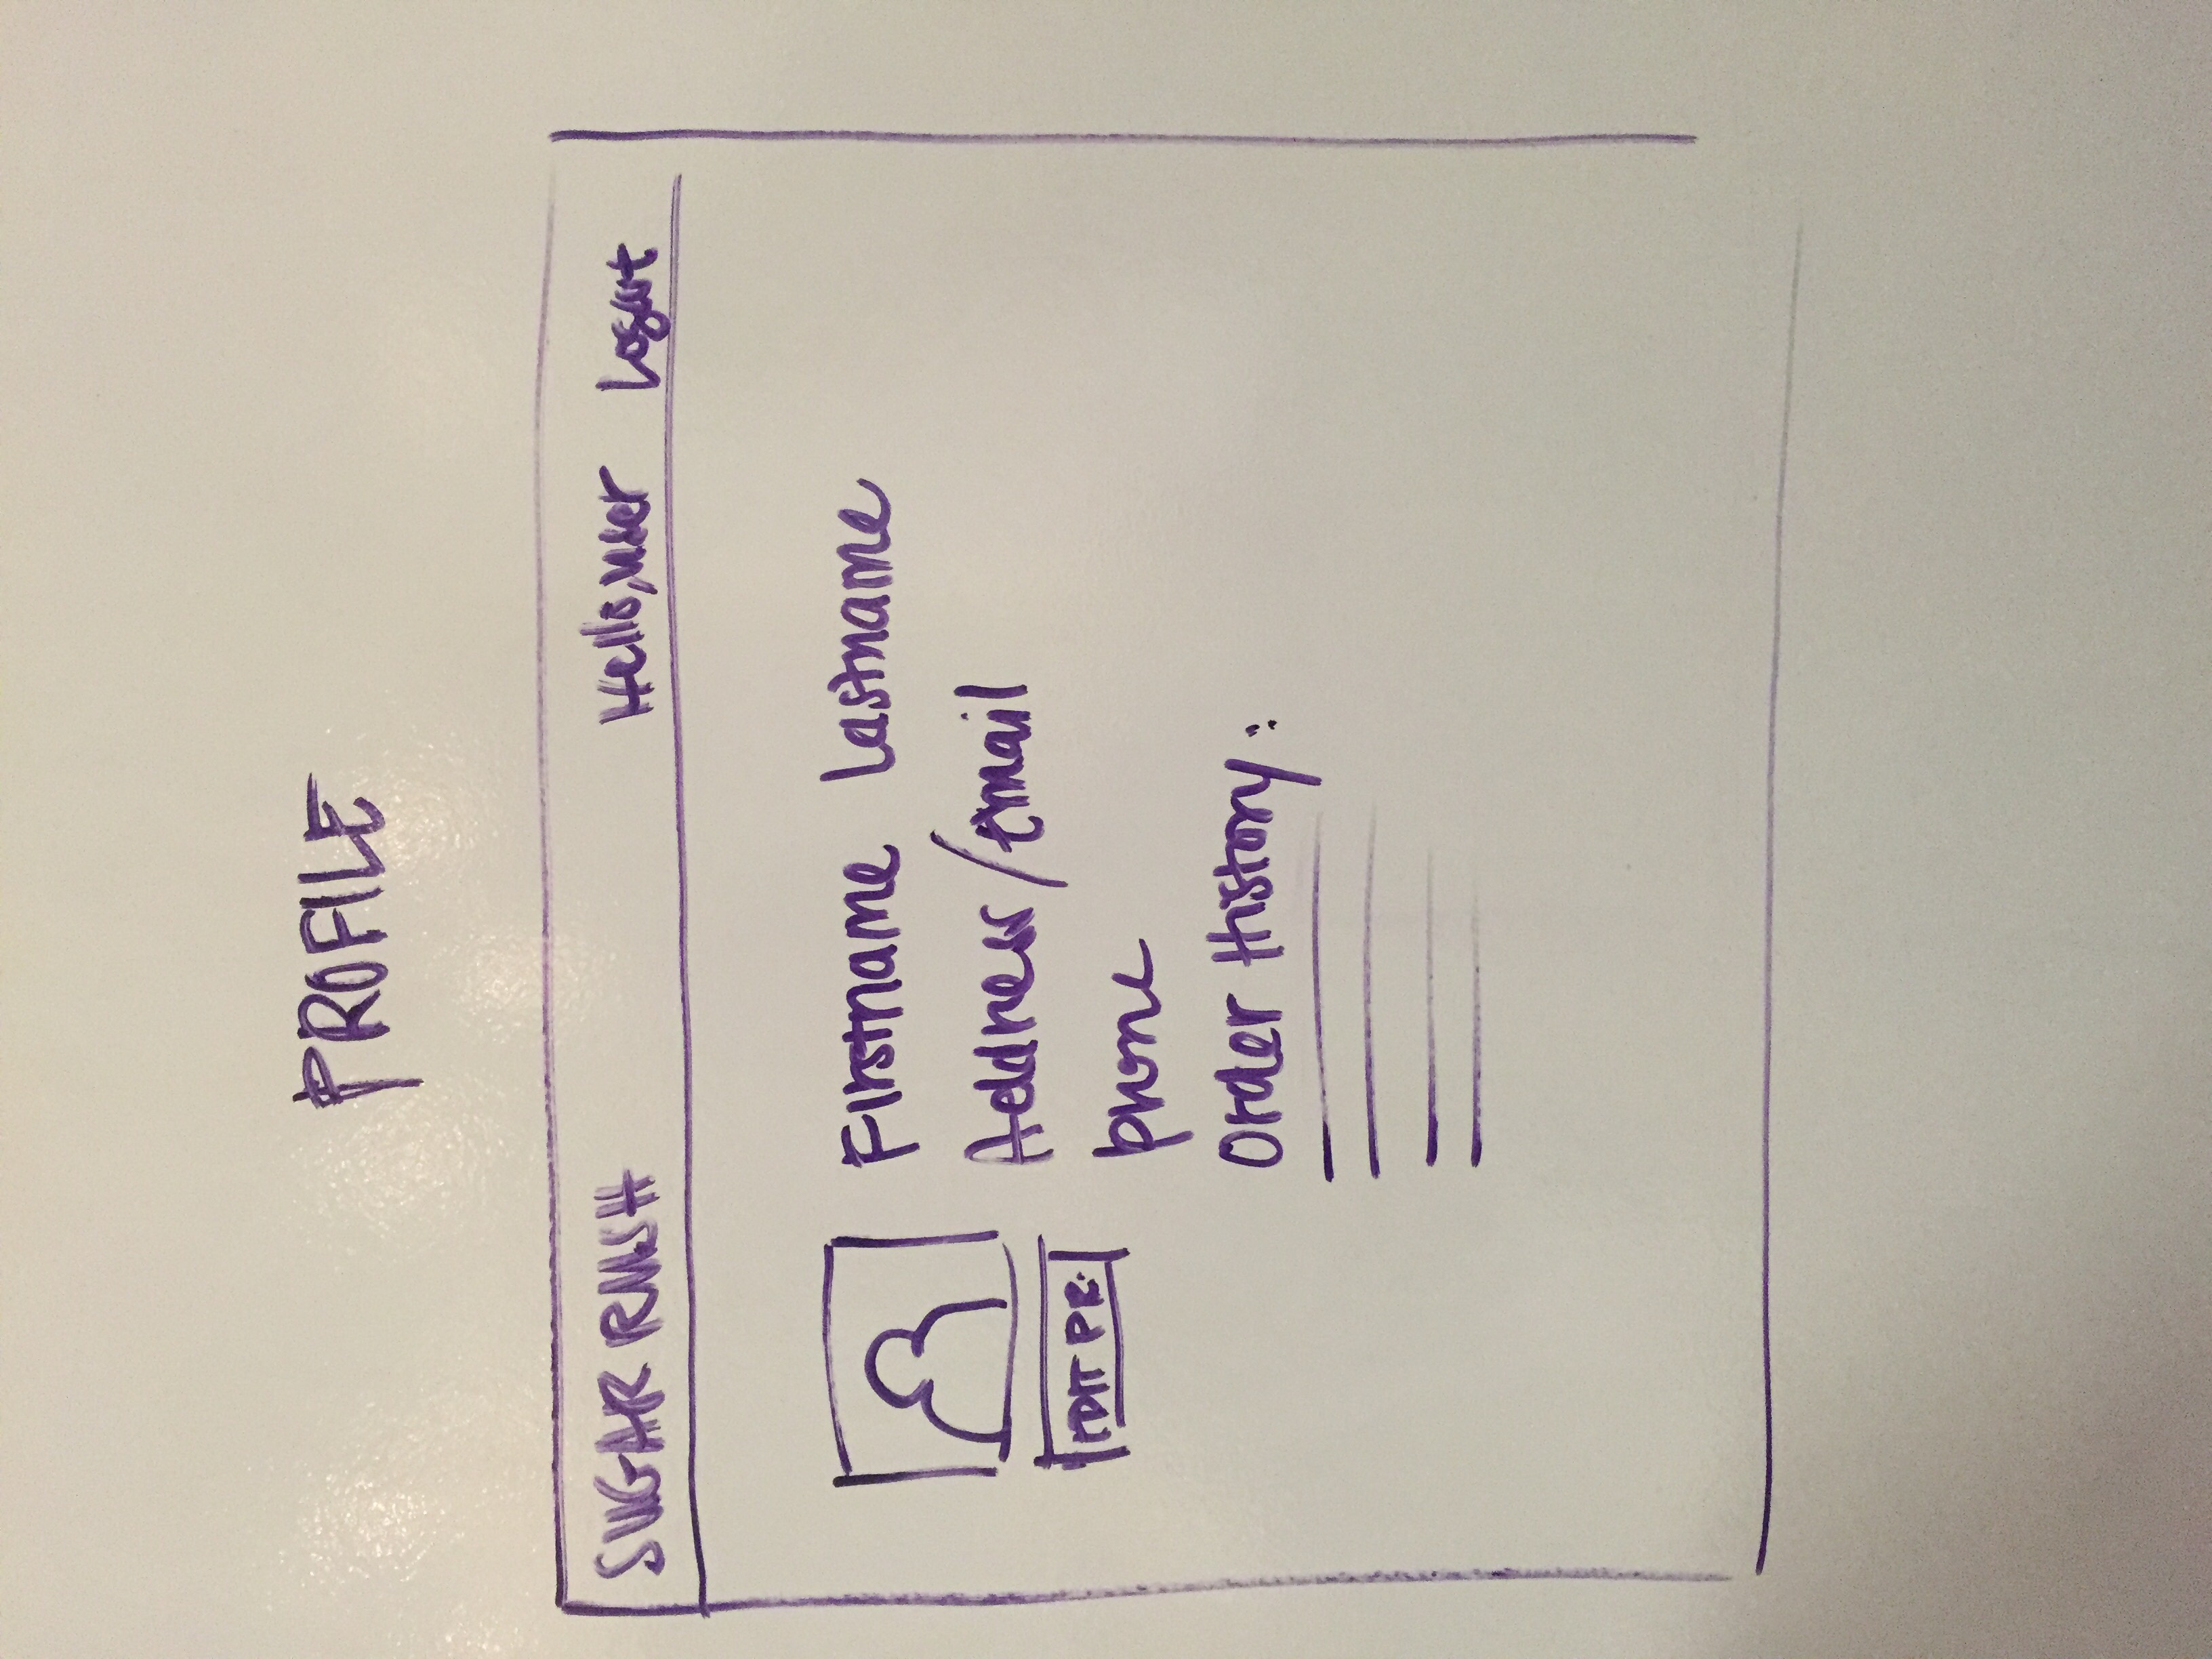 PROFILE
SUGAR RUSH Hello, user Logout
Firstname Lastname
Address/Email
EDIT PR.
phone
Order History: